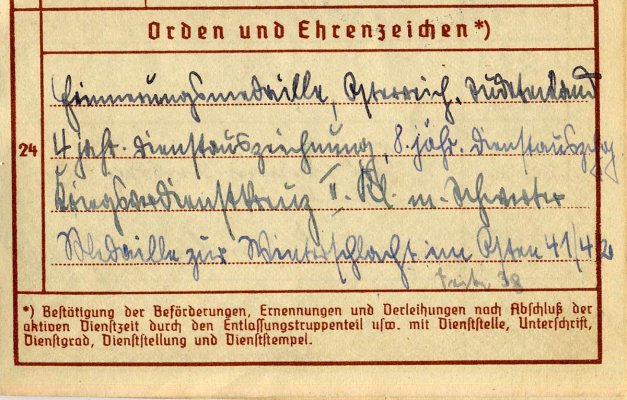 Orden und Ehrenzeichen*)
24
Erinnerungsmedaille, Österreich, Sudetenland
4 jähr. Dienstauszeichnung, 8. jähr. Dienstauszchg
Kriegsverdienstkreuz II. Kl. m. Schwerter
Medaille zur Winterschlacht im Osten 41/42
*) Bestätigung der Beförderungen, Ernennungen und Verleihungen nach Abschluß der
aktiven Dienstzeit durch den Entlassungstruppenteil usw. mit Dienststelle, Unterschrift,
Dienstgrad, Dienststellung und Dienststempel.